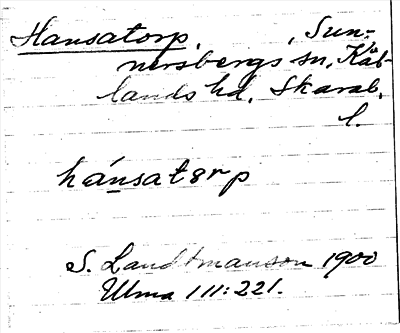 Hansatorp, , Sun-
nersbergs sn, Kål-
lands hd, Skarab.
l.
hánsatørp
S. Landtmanson 1900
Ulma 111:221.